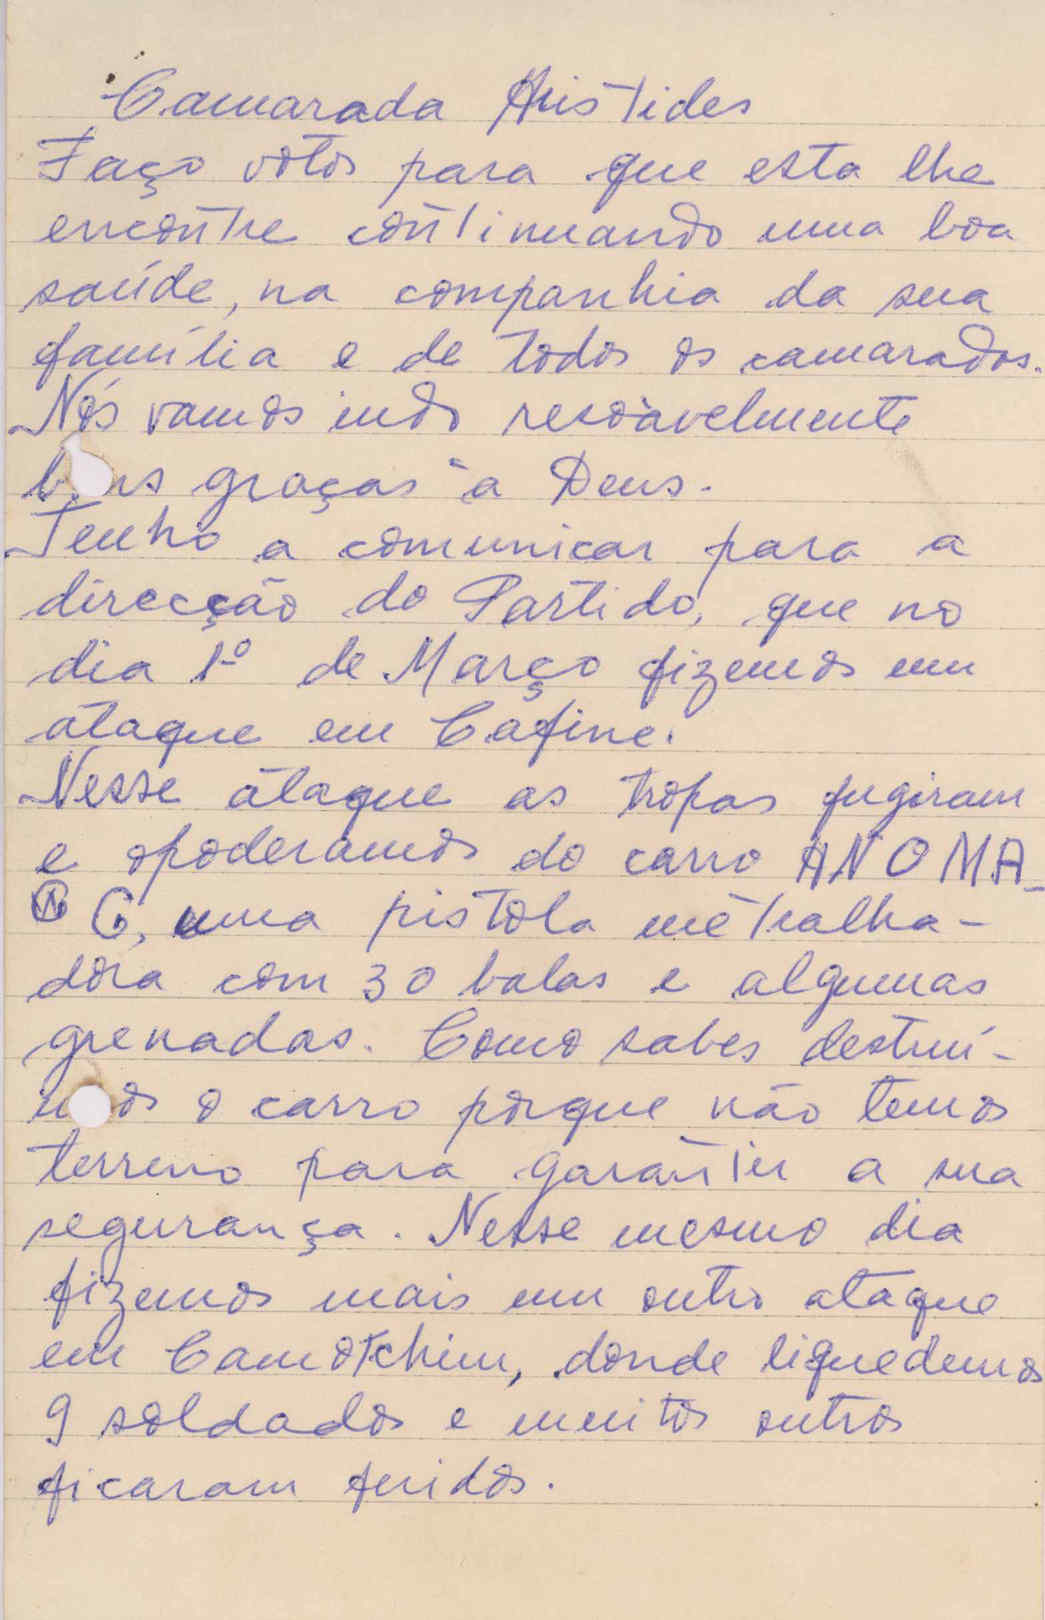 Camarada Aristides
Faço votos para que esta lhe
encontre continuando uma boa
saúde, na companhia da sua
família e de todos os camarados.
Nós vamos indo resoàvelmente
b ns graças à Deus.
Tenho a comunicar para a
direcção do Partido, que no
dia 1º de Março fizemos um
ataque em Cafine.
Nesse ataque as tropas fugiram
e apoderamos do carro ANOMA-
G, uma pistola metralha-
dora com 30 balas e algumas
grenadas. Como sabes destruí-
mos o carro porque não temos
terreno para garantir a sua
segurança. Nesse mesmo dia
fizemos mais um outro ataque
em Camotchim, donde liquedemos
9 soldados e muitos outros
ficaram feridos.